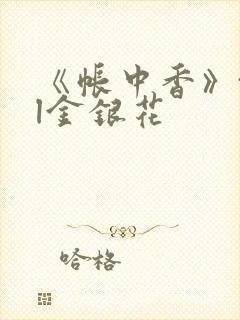 《帐中香》
|金银花
哈格